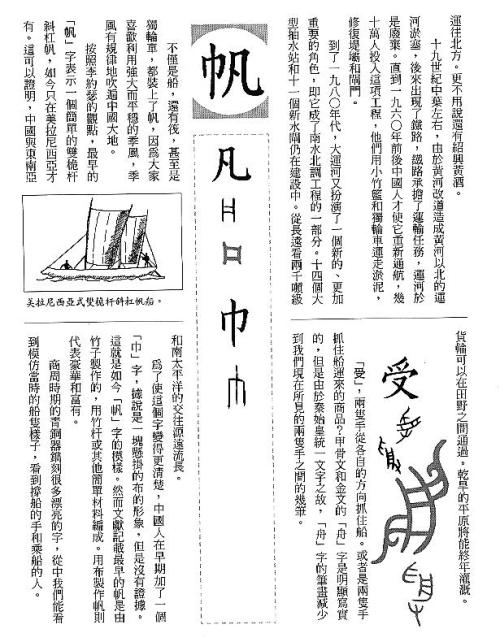 運往北方。更不用說還有紹興黃酒。
十九世紀中葉左右，由於黃河改道造成黃河以北的運
河淤塞，後來出現了鐵路，鐵路承擔了運輸任務，運河於
是廢棄。直到一九六〇年前後中國人才使它重新通航，幾
十萬人投入這項工程，他們用小竹籃和獨輪車運走淤泥，
修復堤壩和閘門。
到了一九八〇年代，大運河又扮演了一個新的、更加
重要的角色，即它成了南水北調工程的一部分。十四個大
型抽水站和十一個新水閘仍在建設中。從長遠看兩千噸級
貨輪可以在田野之間通過，乾旱的平原將能終年灌溉。
受
「受」，兩隻手從各自的方向抓住船。或者是兩隻手
抓住船運來的商品？甲骨文和金文的「舟」字是明顯寫實
的，但是由於秦始皇統一文字之故，「舟」字的筆畫減少
到我們現在所見的兩隻手之間的幾筆。
帆
凡
巾
不僅是船，還有筏，甚至是
獨輪車，都裝上了帆，因為大家
喜歡利用強大而平穩的季風，季
風有規律地吹遍中國大地。
按照李約瑟的觀點，最早的
「帆」字表示一個簡單的雙桅杆
斜杠帆，如今只在美拉尼西亞才
有。這可以證明，中國與東南亞
美拉尼西亞式雙桅杆斜杠帆船。
和南太平洋的交往源遠流長。
為了使這個字變得更清楚，中國人在早期加了一個
「巾」字，據說是一塊懸掛的布的形象，但是沒有證據。
這就是如今「帆」字的模樣。然而文獻記載最早的帆是由
竹子製作的，用竹杆或其他簡單材料編成。用布製作帆則
代表豪華和富有。
商周時期的青銅器鐫刻很多漂亮的字，從中我們能看
到模仿當時的船隻樣子，看到撐船的手和乘船的人。